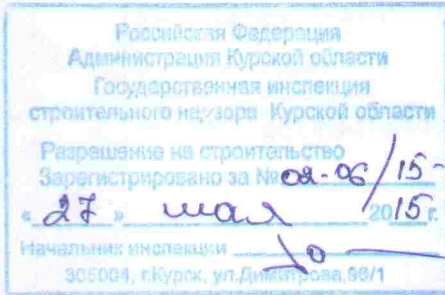 Российская Федерация
Администрация Курской области
Государственная инспекция
строительного надзора Курской области
Разрешение на строительство
Зарегистрировано за № 02-06/15-
« 27 » мая 2015 г.
Начальник инспекции
305004, г.Курск, ул.Димитрова,96/1